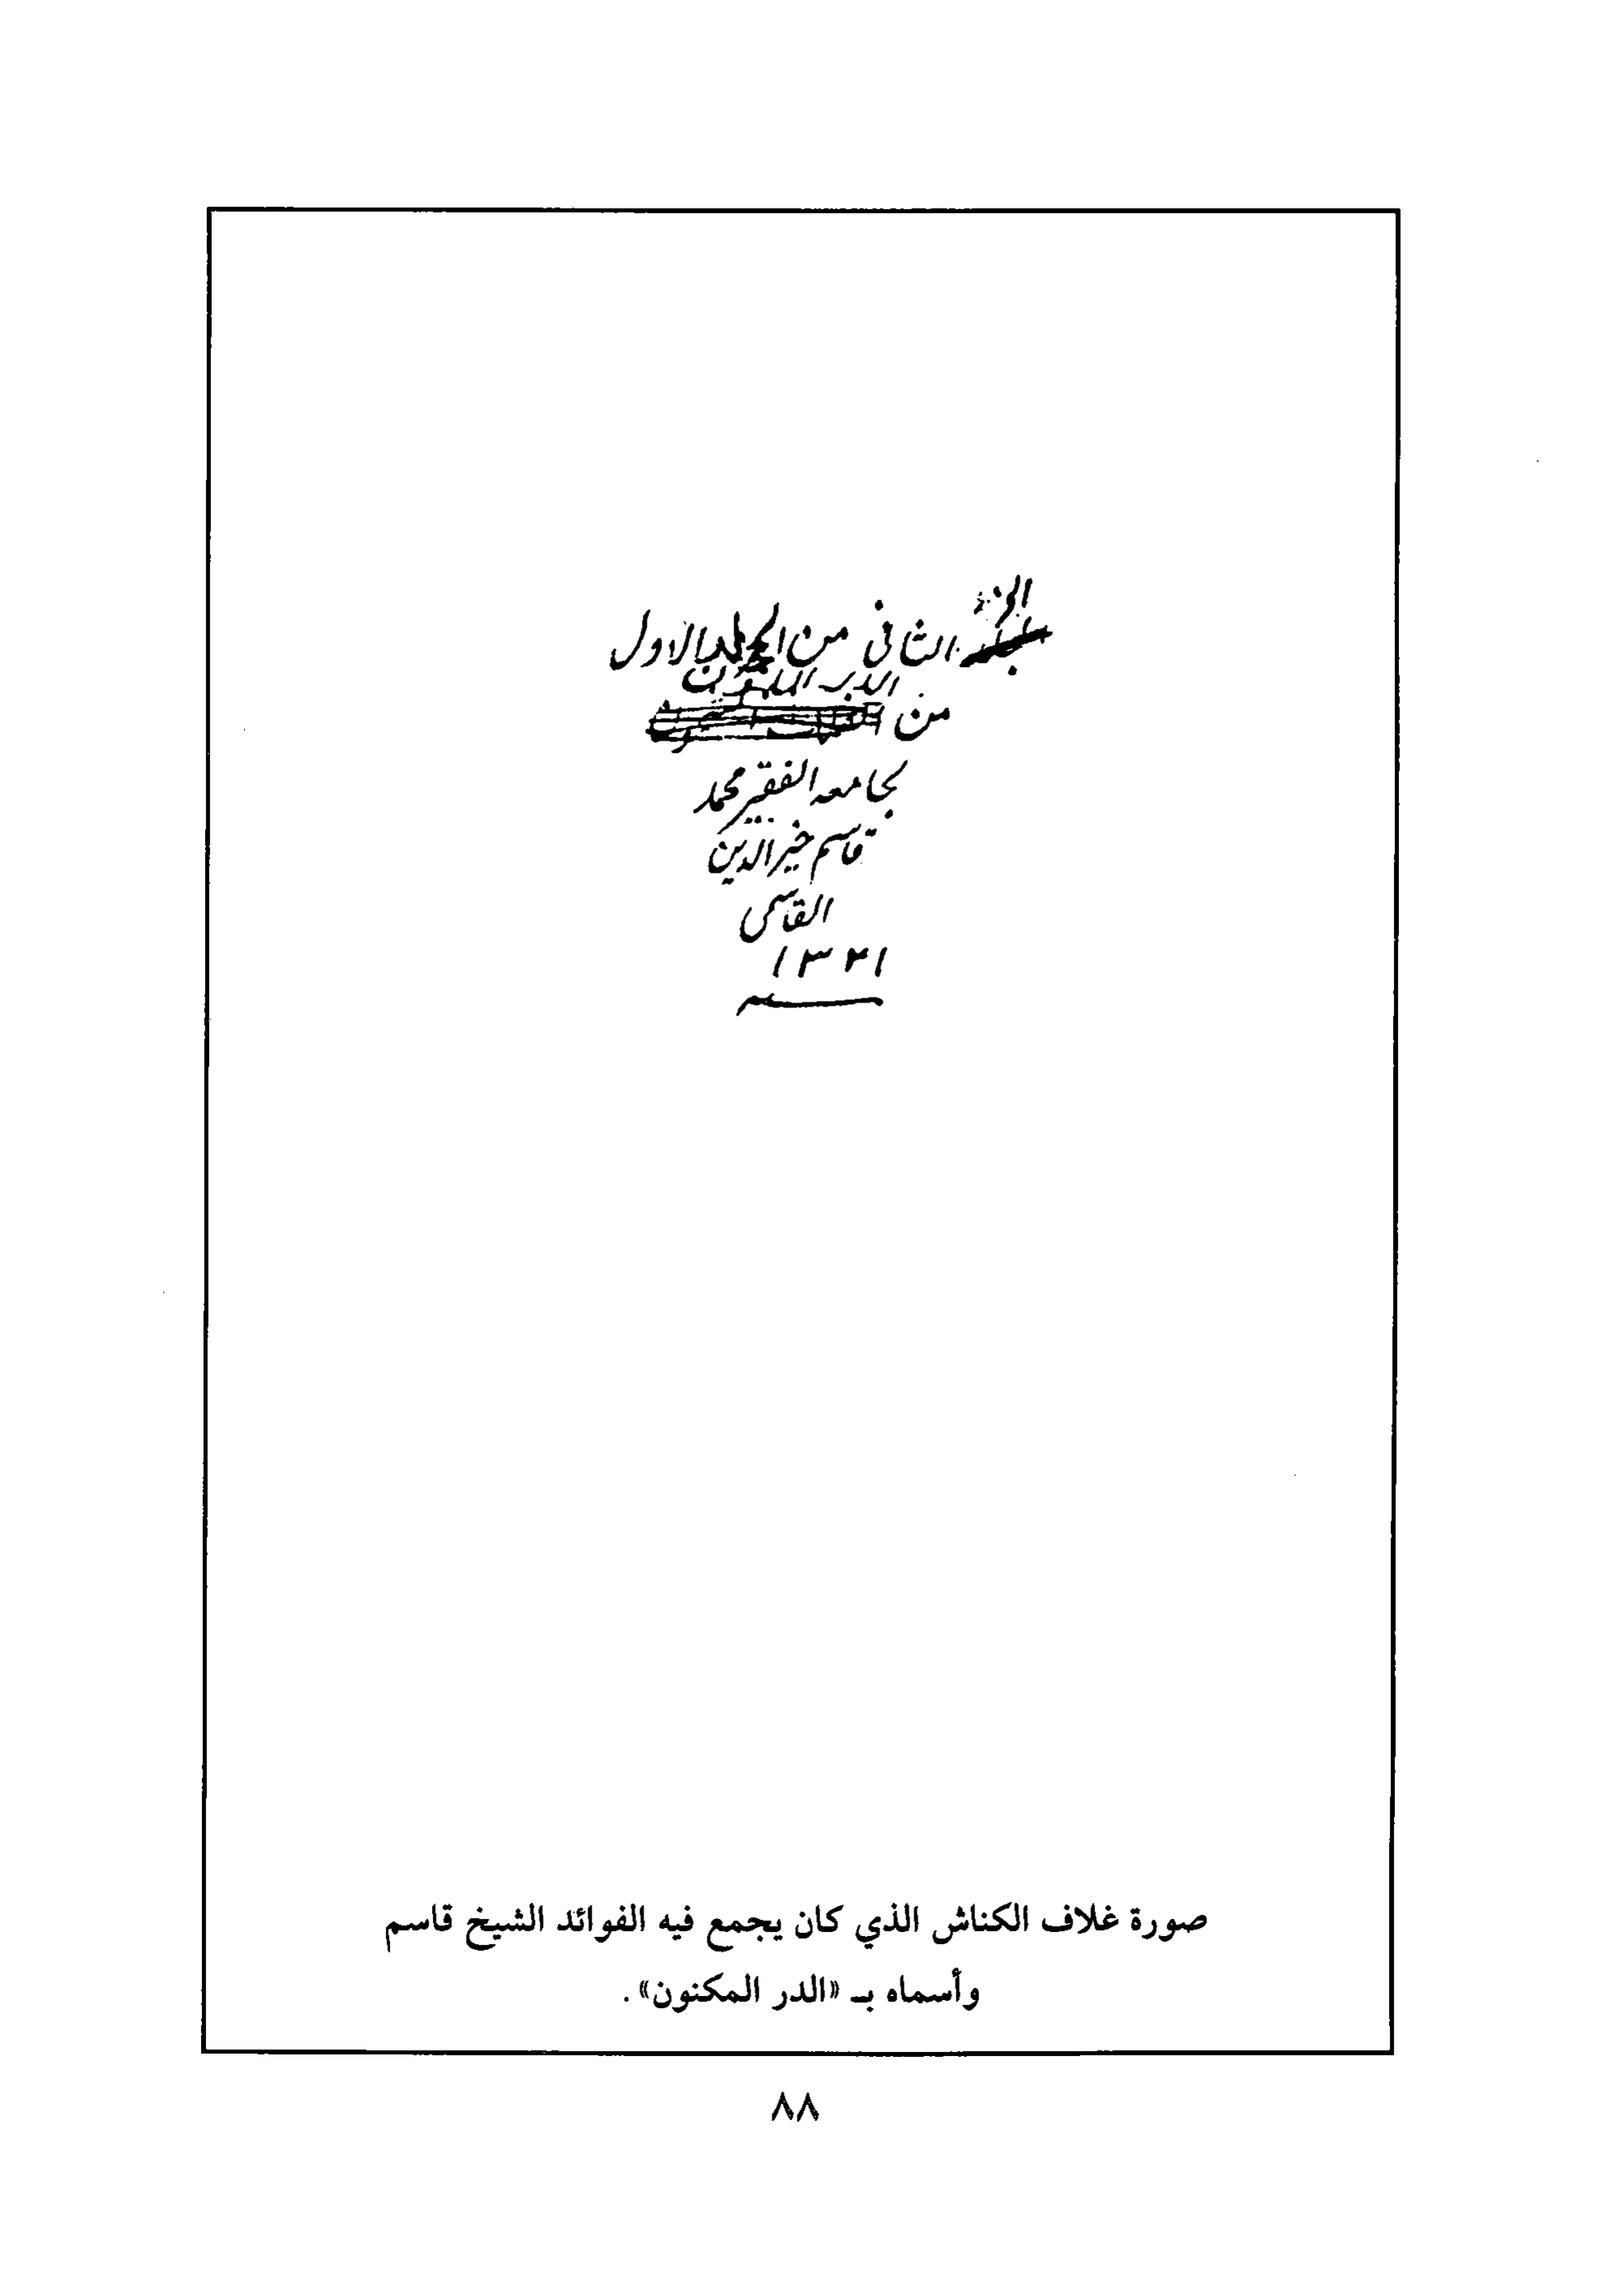 الجزء
الثاني من المجلد الاول
الدر المكنون
من
لجامعه الفقير محمد
قاسم خير الدين
القاسمي
١٣٢١
صورة غلاف الكناش الذي كان يجمع فيه الفوائد الشيخ قاسم
وأسماه بـ «الدر المكنون» .
٨٨